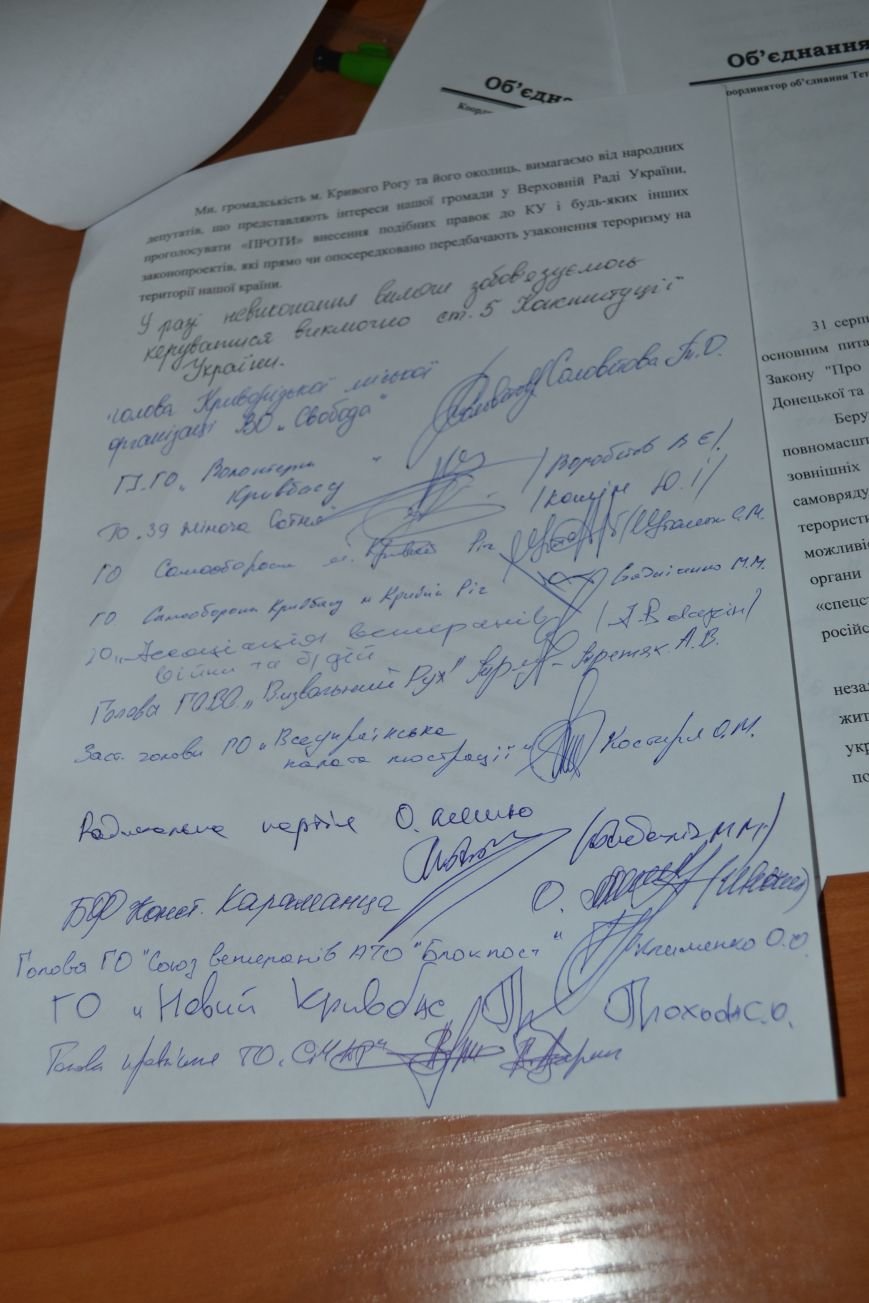 Об'єдна
Коорди
Об'єднання
оординатор об'єднання Тет
Ми, громадськість м. Кривого Рогу та його околиць, вимагаємо від народних
депутатів, що представляють інтереси нашої громади у Верховній Раді України,
проголосувати «ПРОТИ» внесення подібних правок до КУ і будь-яких інших
законопроектів, які прямо чи опосередковано передбачають узаконення тероризму на
території нашої країни.
У разі невиконання вимоги зобов'язуємось
керуватися виключно ст. 5 Конституції
України.
голова Криворізької міської
організації ВО „Свобода" Соловйова Т. О.
ГО „Волонтери
Кривбасу" /Воробйов В Є/
ГО. 39 жіноча Сотня Ю. І/
ГО Самооборони м. Кривий Ріг С. М.
ГО. Самооборони Кривбасу м Кривий Ріг М. М.
ГО „Асоціація ветеранів
війни та б/дій
Голова ГОВО „Визвольний Рух" Третяк А. В.
Заст. голови ГО „Всеукраїнська
палата люстрації" Костиря О. М.
Радикальна партія О. Ляшко М М.)
БФ Конст. Караманца О.
Голова ГО "Союз ветеранів АТО "Блокпост" Клименко О. О.
ГО „Новий Кривбас Пр С. О.
Голова правління ГО
31 серп
основним пита
Закону "Про
Донецької та
Беру
повномасшт
зовнішніх
самовряду
терористи
можливіс
органи
«спецст
російс
неза
жит
укр
по